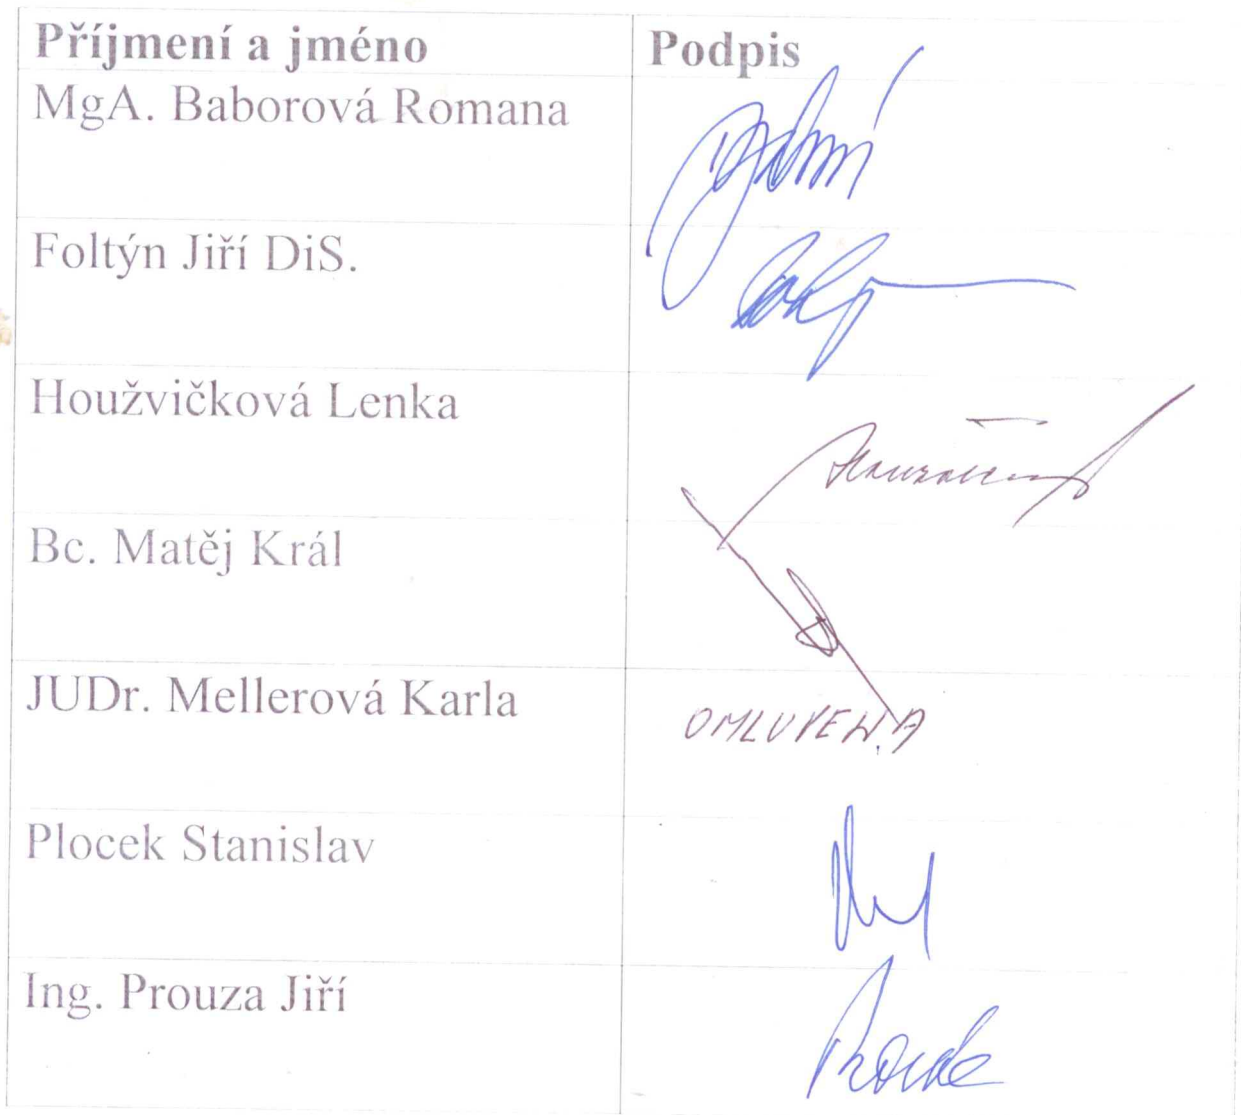 Příjmení a jméno Podpis
MgA. Baborová Romana
Foltýn Jiří DiS.
Houžvičková Lenka
Bc. Matěj Král
JUDr. Mellerová Karla OMLUVENA
Plocek Stanislav
Ing. Prouza Jiří